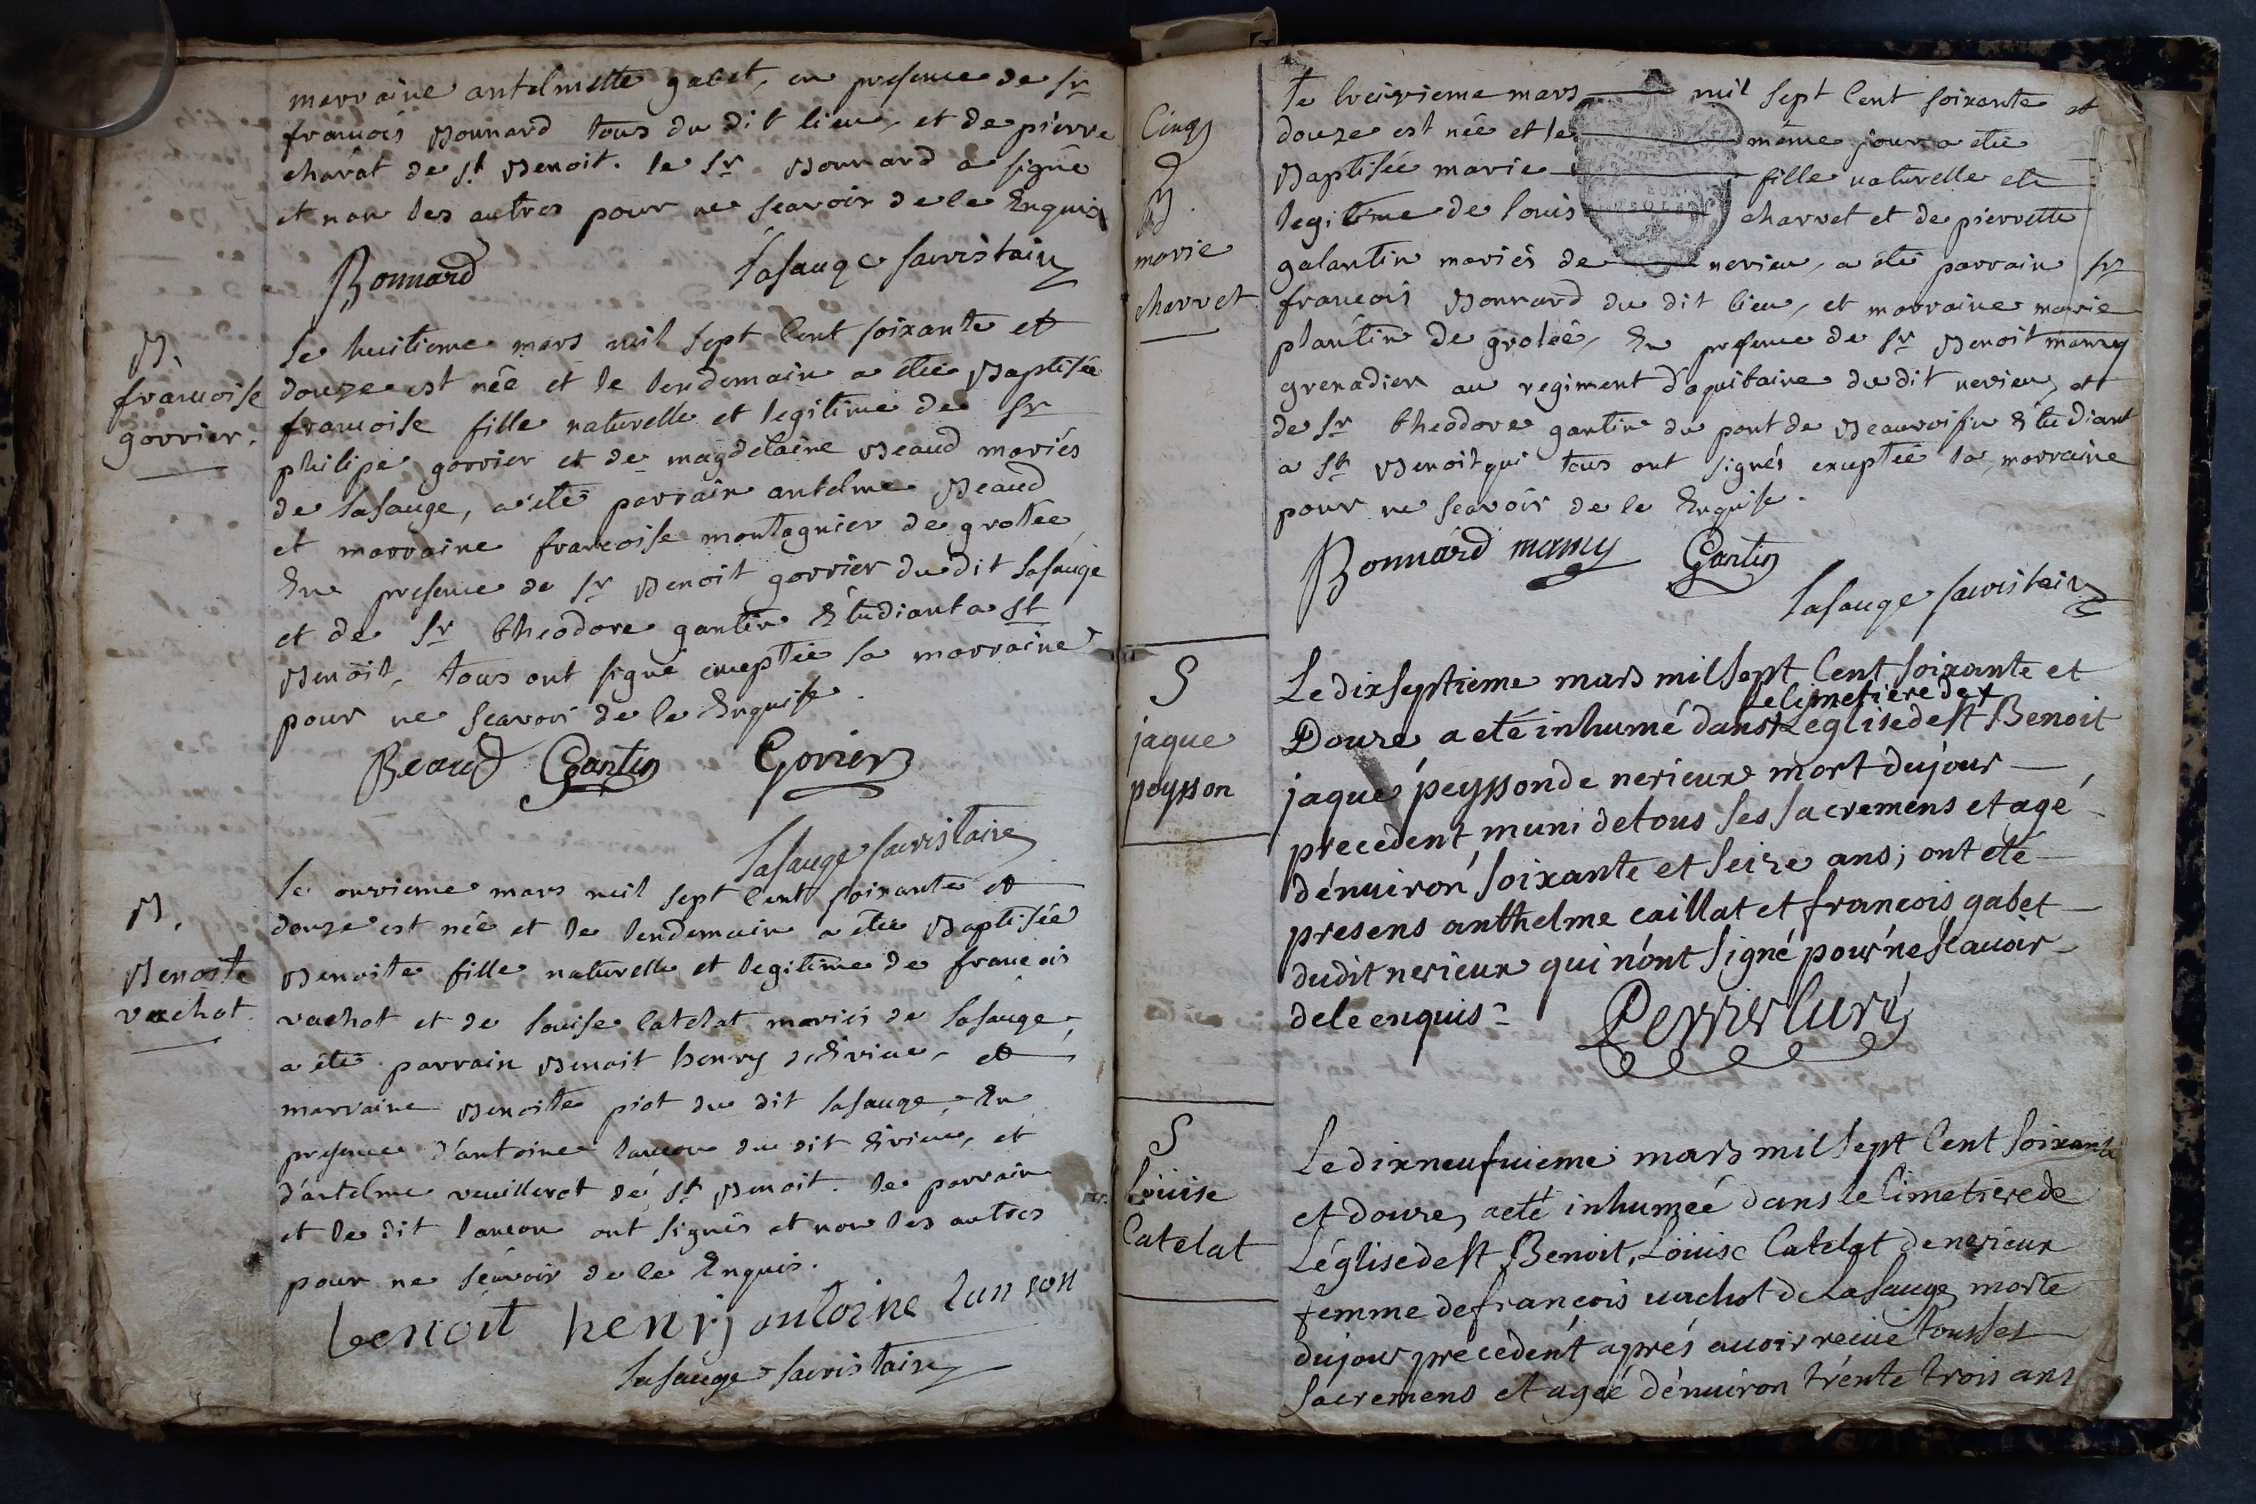 marraine antelmette gabet, en presence de sr
francois Bonnard tous du dit lieu, et de pierre
charat de st Benoit. le sr Bonnard a signé
et non les autres pour ne scavoir de le Enquis
Bonnard
Lasauge sacristain
B.
francoise
gorrier.
le huitieme mars mil sept cent soixante et
douze est née et le lendemain a étée Baptisée
francoise fille naturelle et legitime de sr
philipe gorrier et de magdelaine Beaud mariés
de Lasauge, a été parrain antelme Beaud
et marraine francoise montagnier de grolée
En presence de sr Benoit gorrier du dit Lasauge
et de sr theodore gantin Etudiant a st
Benoit, tous ont signé exceptée la marraine
pour ne scavoir de le Enquise.
Beaud Gantin Gorrier
Lasauge sacristain
B.
Benoite
vachot
le onzieme mars mil sept cent soixante et
douze est née et le lendemain a étée Baptisée
Benoite fille naturelle et legitime de francois
vachot et de louise catelat mariés de lasauge,
a été parrain Benoit henry d'Evieu, et
marraine Benoite piot du dit lasauge, En
presence d'antoine lancon du dit Evieu, et
d'antelme veuillerot de st Benoit. le parrain
et le dit lancon ont signés et non les autres
pour ne scavoir de le Enquis.
benoit henrij antoine lanson
lasauge sacristain
Cinq
B.
marie
charvet
le treizieme mars mil sept cent soixante et
douze est née et le même jour a étée
Baptisée marie fille naturelle et
legitime de louis charvet et de pierrette
galantin mariés de nerieu, a été parrain sr
francois Bonnard du dit lieu, et marraine marie
plantin de grolée, En presence de sr Benoit mamy
grenadier au regiment d'aquitaine du dit nerieu, et
de sr theodore gantin du pont de Beauvoisin Etudiant
a st Benoit qui tous ont signés exceptée la marraine
pour ne scavoir de le Enquise.
Bonnard mamy Gantin
Lasauge sacristain
S
jaque
peysson
Le dixseptieme mars mil sept Cent soixante et
le cimetiere de
Douze a eté inhumé dans Leglise de st Benoit
jaque peysson de nerieux mort du jour
precedent muni de tous ses sacremens et agé
dénuiron soixante et seize ans; ont eté
presens anthelme caillat et francois gabet
dudit nerieux qui n'ont signé pour ne scavoir
de le enquis
Perrier Curé
S
Louise
Catelat
Le dixneufuieme mars mil sept Cent soixante
et douze, a eté inhumée dans le Cimetiere de
Léglise de st Benoit, Louise Catelat de nerieux
femme de francois uachot de Lasauge morte
du jour precedent aprés auoir recue tous ses
sacremens et agée dénuiron trente trois ans